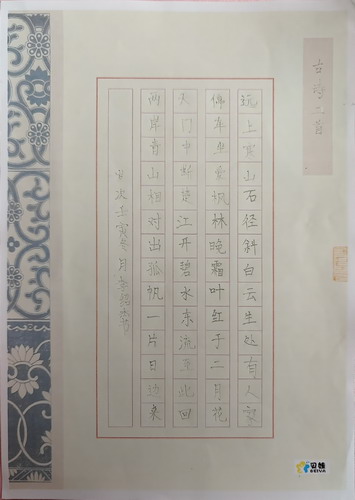 古诗二首
远上寒山石径斜白云生处有人家
停车坐爱枫林晚霜叶红于二月花
天门中断楚江开碧水东流至此回
两岸青山相对出孤帆一片日边来
岁次壬寅年月书